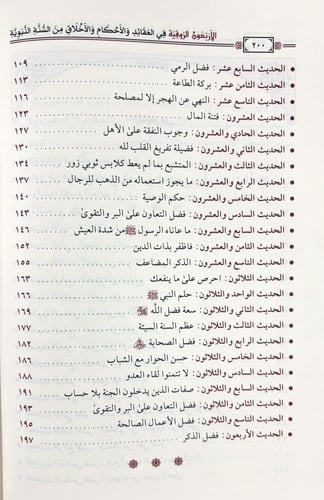 ٢٠٠ الأربعون الرمضانية في العقائد والأحكام والأخلاق من السنة النبوية
الحديث السابع عشر: فضل الرمي ١٠٩
الحديث الثامن عشر: بركة الطاعة ١١٣
الحديث التاسع عشر: النهي عن الهجر إلا لمصلحة ١١٦
الحديث العشرون: فتنة المال ١٢٣
الحديث الحادي والعشرون: وجوب النفقة على الأهل ١٢٧
الحديث الثاني والعشرون: فضيلة تفريغ القلب لله ١٣٠
الحديث الثالث والعشرون: المتشبع بما لم يعط كلابس ثوبي زور ١٣٤
الحديث الرابع والعشرون: ما يجوز استعماله من الذهب للرجال ١٣٧
الحديث الخامس والعشرون: حكم الوصية ١٤٠
الحديث السادس والعشرون: فضل التعاون على البر والتقوى ١٤٣
الحديث السابع والعشرون: ما عاناه الرسول ﷺ من شدة العيش ١٤٦
الحديث الثامن والعشرون: فاظفر بذات الدين ١٥٢
الحديث التاسع والعشرون: الذكر المضاعف ١٥٥
الحديث الثلاثون: احرص على ما ينفعك ١٦٣
الحديث الواحد والثلاثون: حلم النبي ﷺ ١٦٦
الحديث الثاني والثلاثون: سعة فضل الله ١٦٩
الحديث الثالث والثلاثون: عظم السنة السيئة ١٧٧
الحديث الرابع والثلاثون: فضل الصحابة ١٨٢
الحديث الخامس والثلاثون: حسن الحوار مع الشباب ١٨٦
الحديث السادس والثلاثون: لا تتمنوا لقاء العدو ١٨٨
الحديث السابع والثلاثون: صفات الذين يدخلون الجنة بلا حساب ١٩١
الحديث الثامن والثلاثون: فضل التعاون على البر والتقوى ١٩٣
الحديث التاسع والثلاثون: فضل الأعمال الصالحة ١٩٥
الحديث الأربعون: فضل الذكر ١٩٧